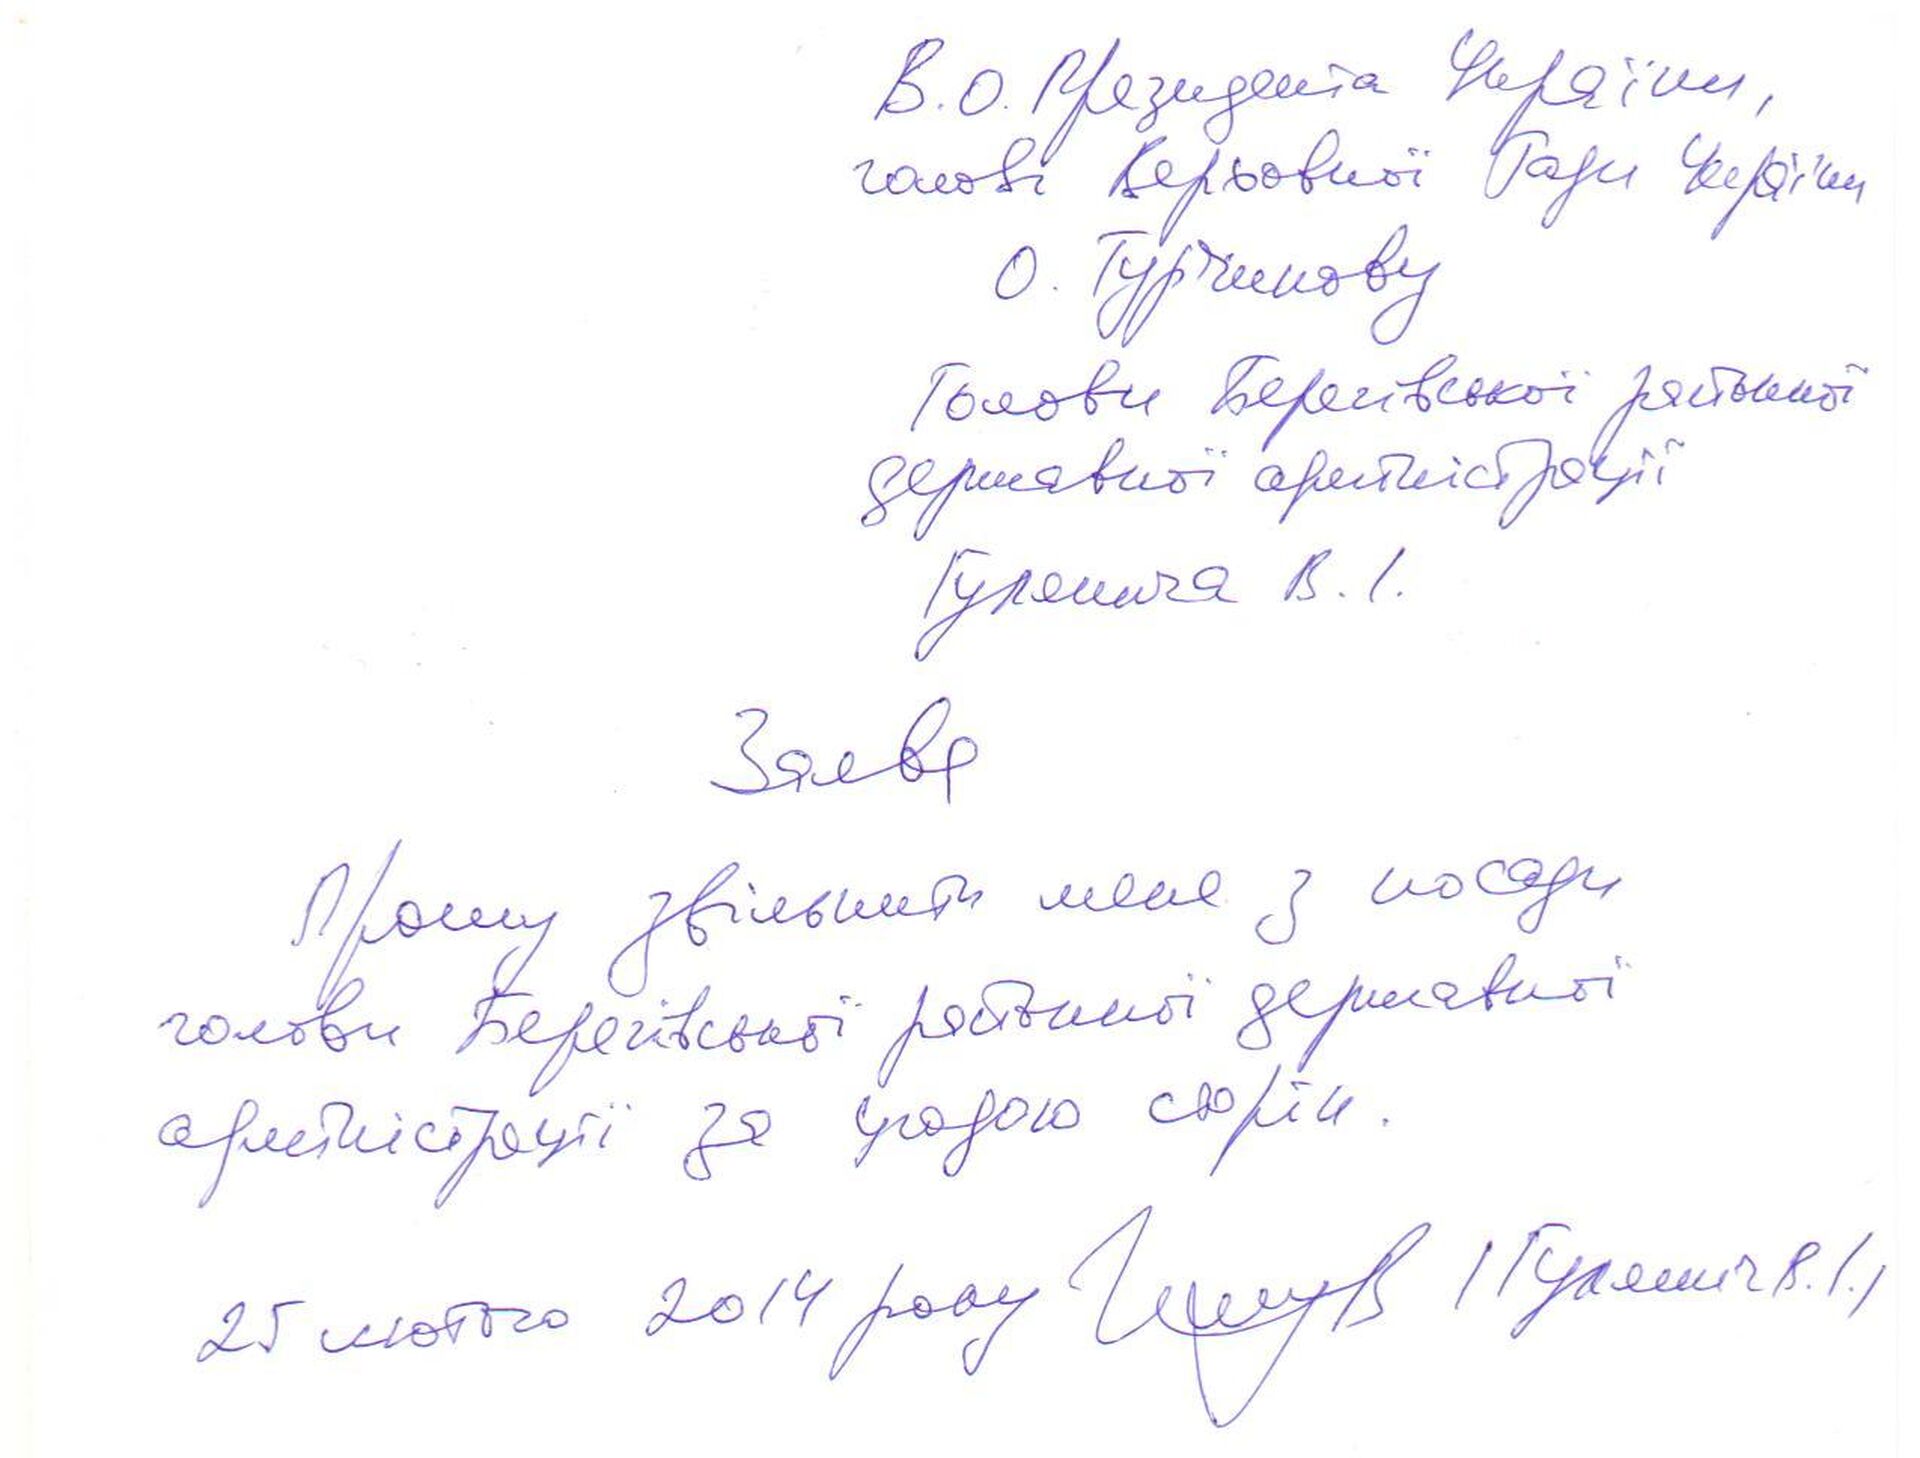 В.О. Президента України,
голові Верховної Ради України
О. Турчинову
Голови Берегівської районної
державної адміністрації
Гулянича В. І.
Заява
Прошу звільнити мене з посади
голови Берегівської районної державної
адміністрації за угодою сторін.
25 лютого 2014 року /Гулянич В.І./